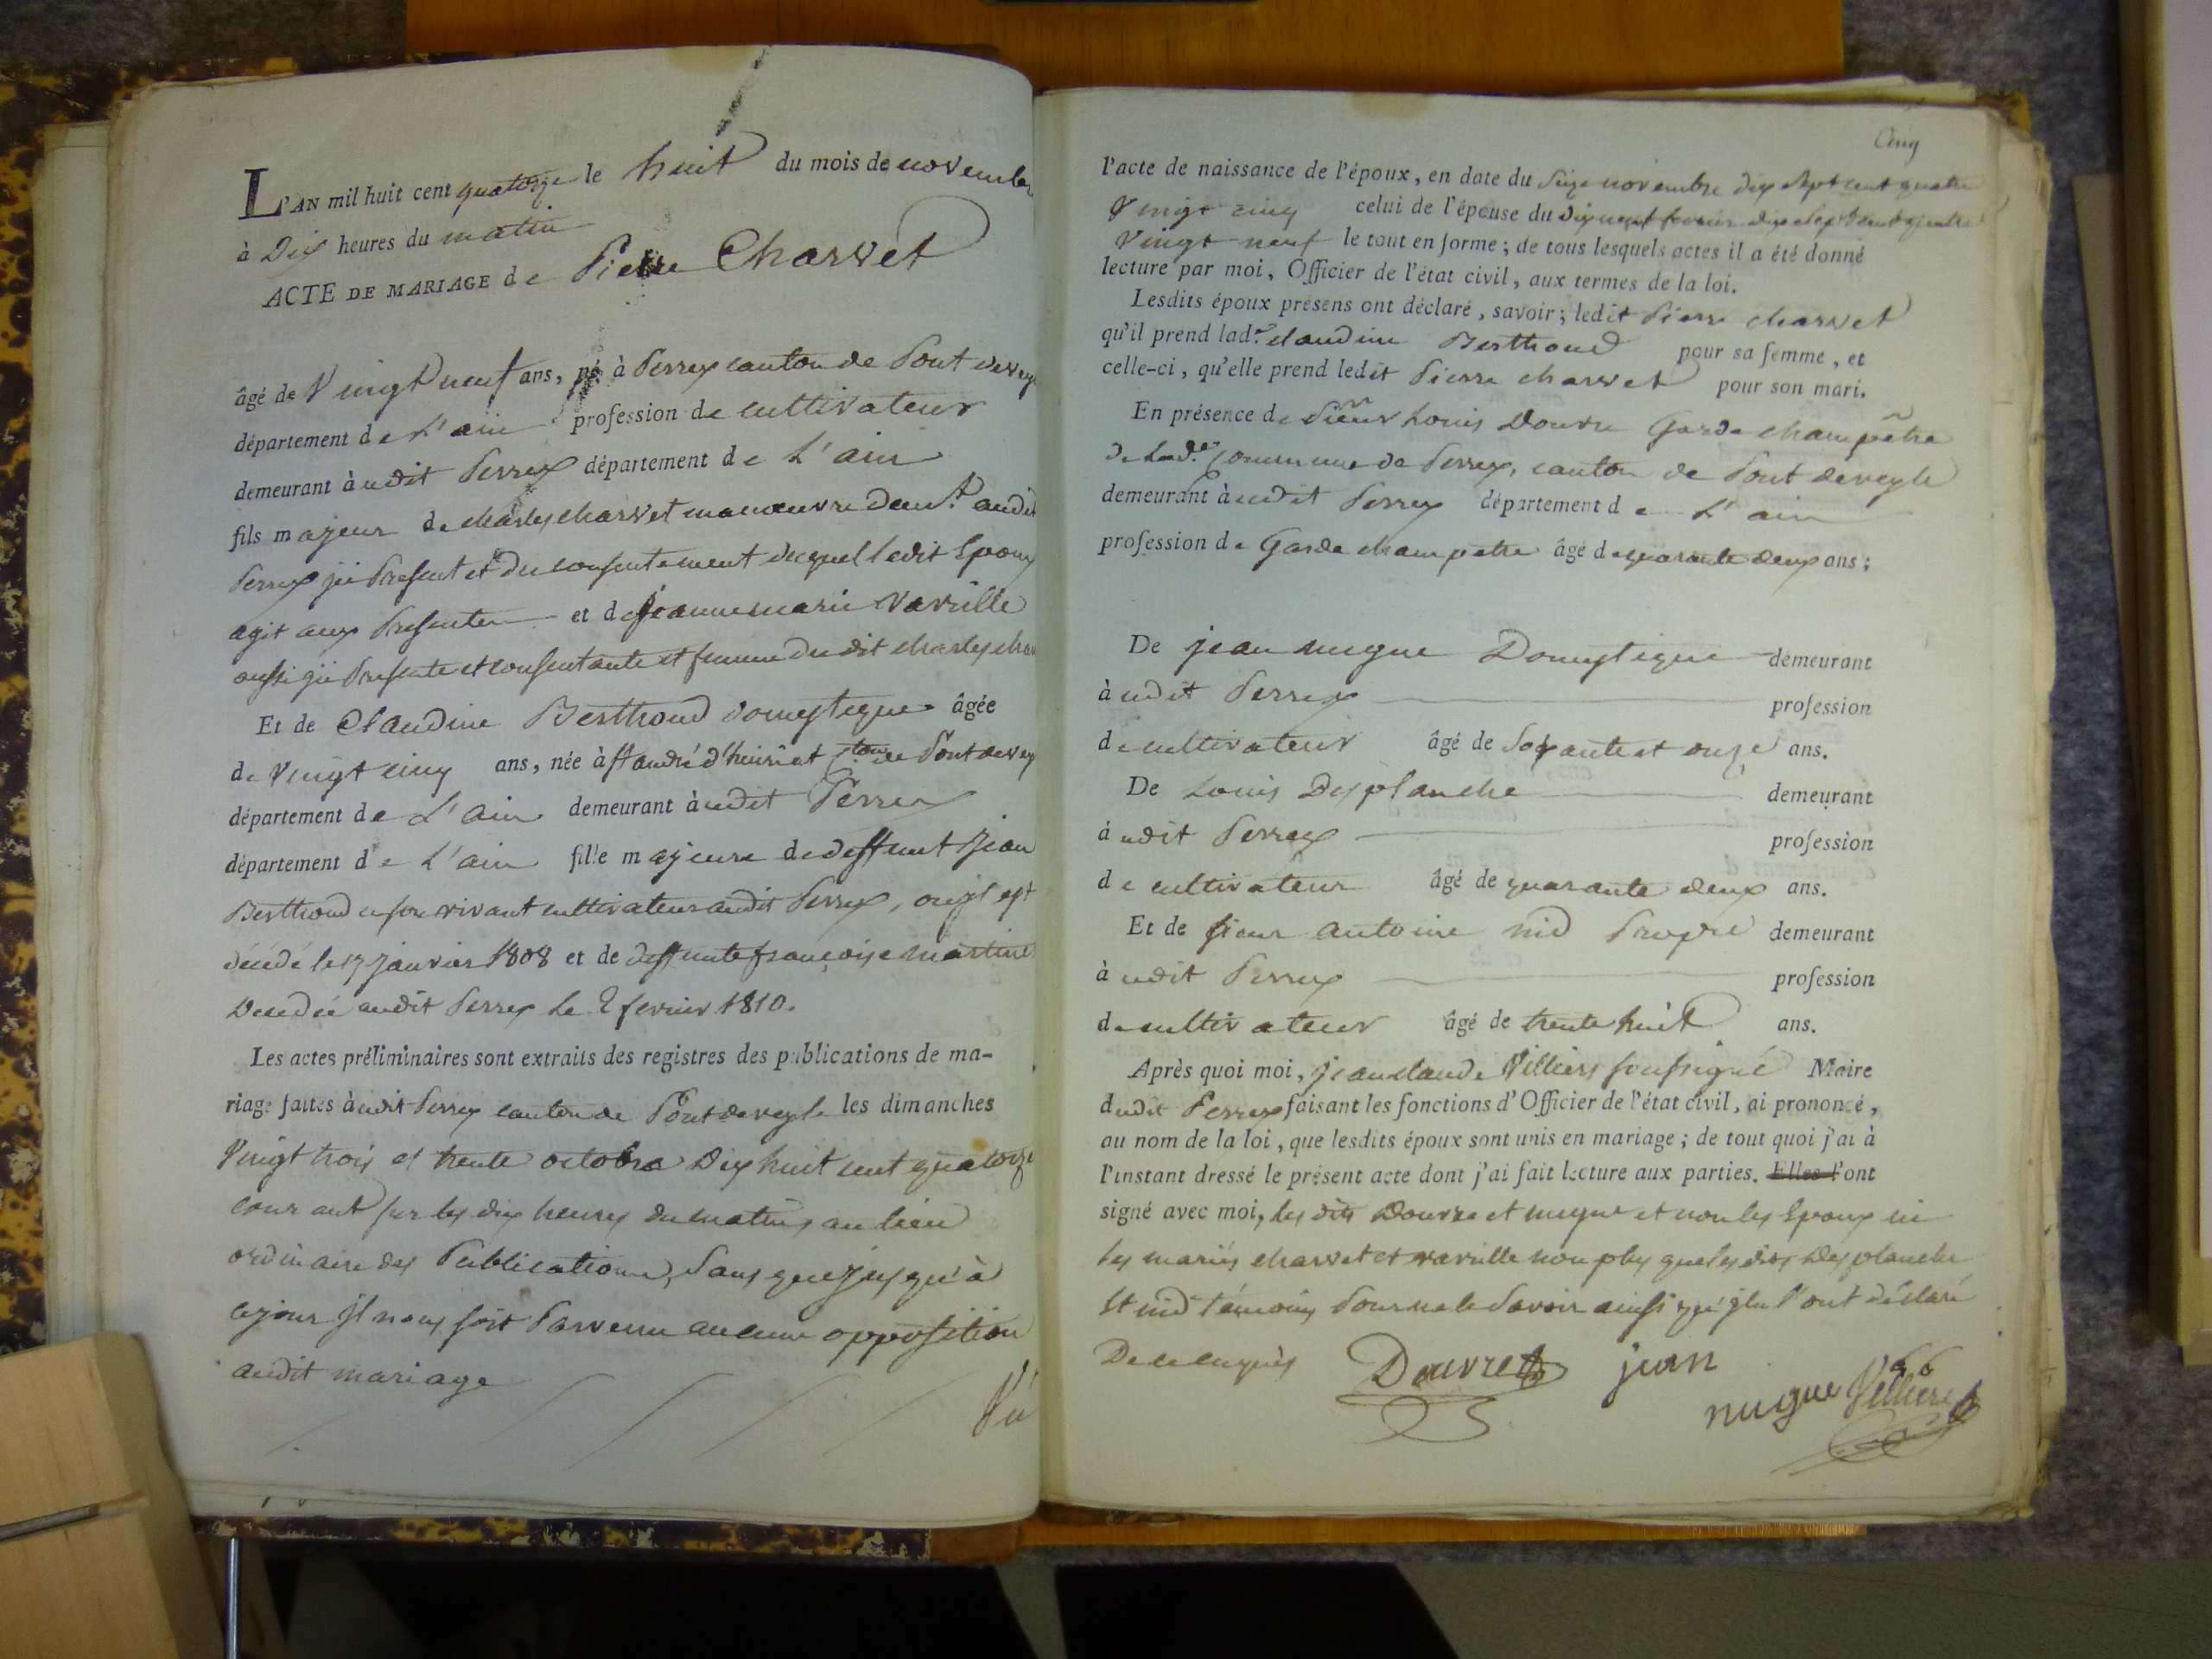 L'AN mil huit cent quatorze le huit du mois de novembre
à Dix heures du matin
ACTE DE MARIAGE de Pierre Charvet
âgé de Vingt neuf ans, né à Perrex canton de Pont deveyl
département de L'ain profession de cultivateur
demeurant à udit Perrex département de L'ain
fils majeur de charles charvet manœuvre demt. audit
Perrex ici Present et du consentement duquel ledit Epoux
agit aux Presentes et de jeanne marie Varville
aussi ici Presente et consentante et femme du dit charles char
Et de Claudine Berthoud domestique âgée
de Vingt cinq ans, née à st andré d'huiriat Cton de Pont devey
département de L'ain demeurant à udit Perrex
département de L'ain fille majeure de deffunt Jean
Berthoud en son vivant cultivateur audit Perrex, ou il est
décédé le 17 janvier 1808 et de deffunte françoise martine
Decedée audit Perrex le 2 fevrier 1810.
Les actes préliminaires sont extraits des registres des publications de ma-
riage faites à udit Perrex canton de Pont deveyle les dimanches
Vingt trois et trente octobre Dix huit cent quatorze
courant sur les dix heures du matins au lieu
ordinaire des Publications, Sans que jusqu'à
ce jour il nous soit Parvenu aucune opposition
audit mariage
Vu
Cinq
l'acte de naissance de l'époux, en date du Seize novembre dix sept cent quatre
Vingt cinq celui de l'épouse du dix neuf fevrier dix sept cent quatre
Vingt neuf le tout en forme; de tous lesquels actes il a été donné
lecture par moi, Officier de l'état civil, aux termes de la loi.
Lesdits époux présens ont déclaré, savoir; ledit Pierre charvet
qu'il prend lad.e claudine Berthoud pour sa femme, et
celle-ci, qu'elle prend ledit Pierre charvet pour son mari.
En présence de Sieur Louis Douvre Garde champêtre
de Lad.e Commune de Perrex, canton de Pont deveyle
demeurant à udit Perrex département de L'ain
profession de Garde champetre âgé de quarante deux ans;
De jean nugue Domestique demeurant
à udit Perrex profession
de cultivateur âgé de Soixante et onze ans.
De Louis Desplanche demeurant
à udit Perrex profession
de cultivateur âgé de quarante deux ans.
Et de sieur antoine nid Propre demeurant
à udit Perrex profession
de cultivateur âgé de trente huit ans.
Après quoi moi, jean claude Villiers soussigné Maire
dudit Perrex faisant les fonctions d'Officier de l'état civil, ai prononcé,
au nom de la loi, que lesdits époux sont unis en mariage; de tout quoi j'ai à
l'instant dressé le présent acte dont j'ai fait lecture aux parties. Elles l'ont
signé avec moi, les dits Douvre et nugue et non les Epoux ni
les mariés charvet et varville non plus que les dits Desplanche
Et nid témoins Pour ne le Savoir ainsi qu'ils l'ont déclaré
De ce enquis Douvre jean
nugue Villiers